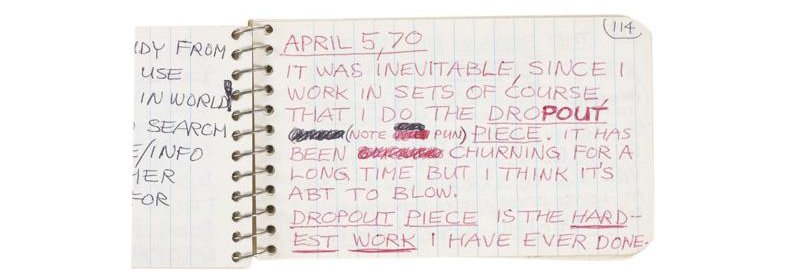 DY FROM
USE
IN WORLD
SEARCH
/INFO
HER
FOR
114
APRIL 5, 70
IT WAS INEVITABLE, SINCE I
WORK IN SETS OF COURSE,
THAT I DO THE DROPOUT
(NOTE PUN) PIECE. IT HAS
BEEN CHURNING FOR A
LONG TIME BUT I THINK IT'S
ABT TO BLOW.
DROPOUT PIECE IS THE HARD-
EST WORK I HAVE EVER DONE.